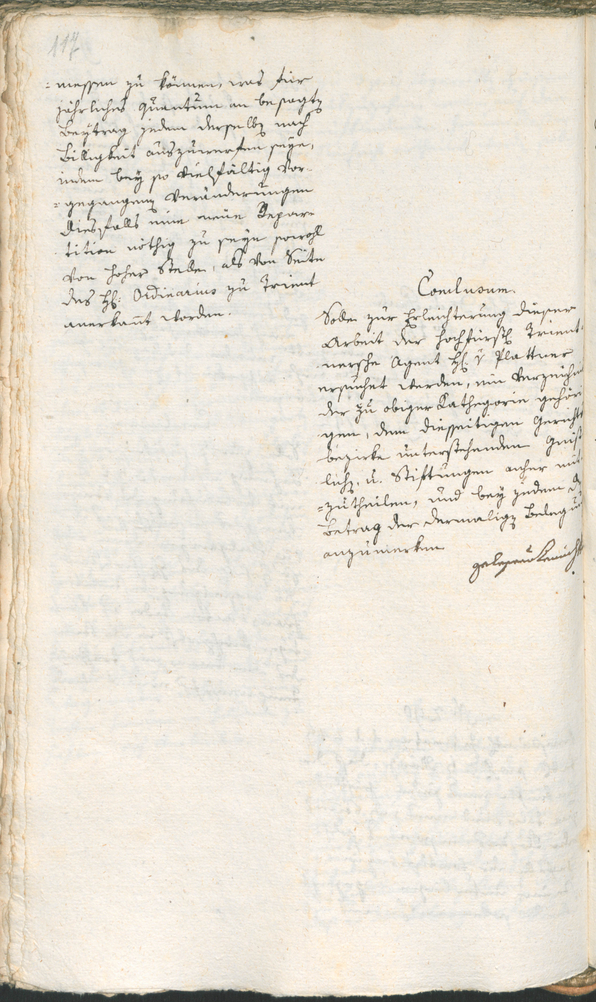 117
=messen zu können, was für
jährliches quantum an besagtz
Beytrag jedem derselbz nach
Billigkeit auszuwerfen seye,
indem bey so vielfältig vor-
=gegangenz Veränderungen
diesfalls eine neue Repar-
tition nöthig zu seyn sowohl
von hoher Stelle, als von Seite
des H: Ordinarius zu Trient
anerkannt worden.
Conclusum.
Solle zur Erleichterung dieser
Arbeit der hochfürstl Trient-
nersche Agent H: v Plattner
ersuchet werden, ein Verzeichn
der zu obiger Kathegorie gehöri
gen, dem diesseitigen Gerichts
bezirke unterstehenden Geist
lichz. u. Stiftungen anher mit
=zutheilen, und bey jedem d
Betrag der dermaligz Belegu
anzumerken